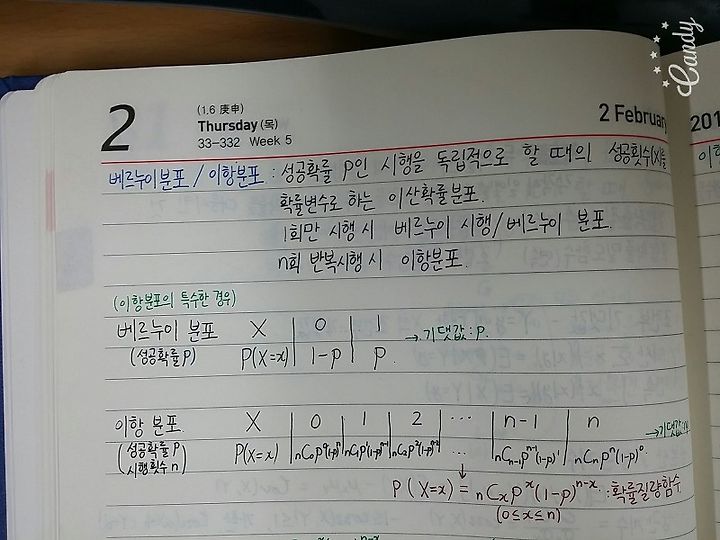 Candy
2
(1.6 庚申)
Thursday (목)
33-332 Week 5
2 Februar
201
베르누이분포 / 이항분포 : 성공확률 P인 시행을 독립적으로 할 때의 성공횟수(X)를
확률변수로 하는 이산확률분포.
1회만 시행 시 베르누이 시행/베르누이 분포.
n회 반복시행 시 이항분포.
(이항분포의 특수한 경우)
베르누이 분포 X 0 1 →기댓값 : P.
(성공확률 P) P(X=x) 1-P P.
이항 분포. X 0 1 2 ... n-1 n →기댓값:
(성공확률 P 시행횟수 n) P(X=x) nC₀P⁰(1-P)ⁿ nC₁P¹(1-P)ⁿ⁻¹ nC₂P²(1-P)ⁿ⁻² ... nCₙ₋₁Pⁿ⁻¹(1-P)¹ nCₙPⁿ(1-P)⁰.
↓
P(X=x) = nCxPˣ(1-P)ⁿ⁻ˣ : 확률질량함수.
(0≤x≤n)